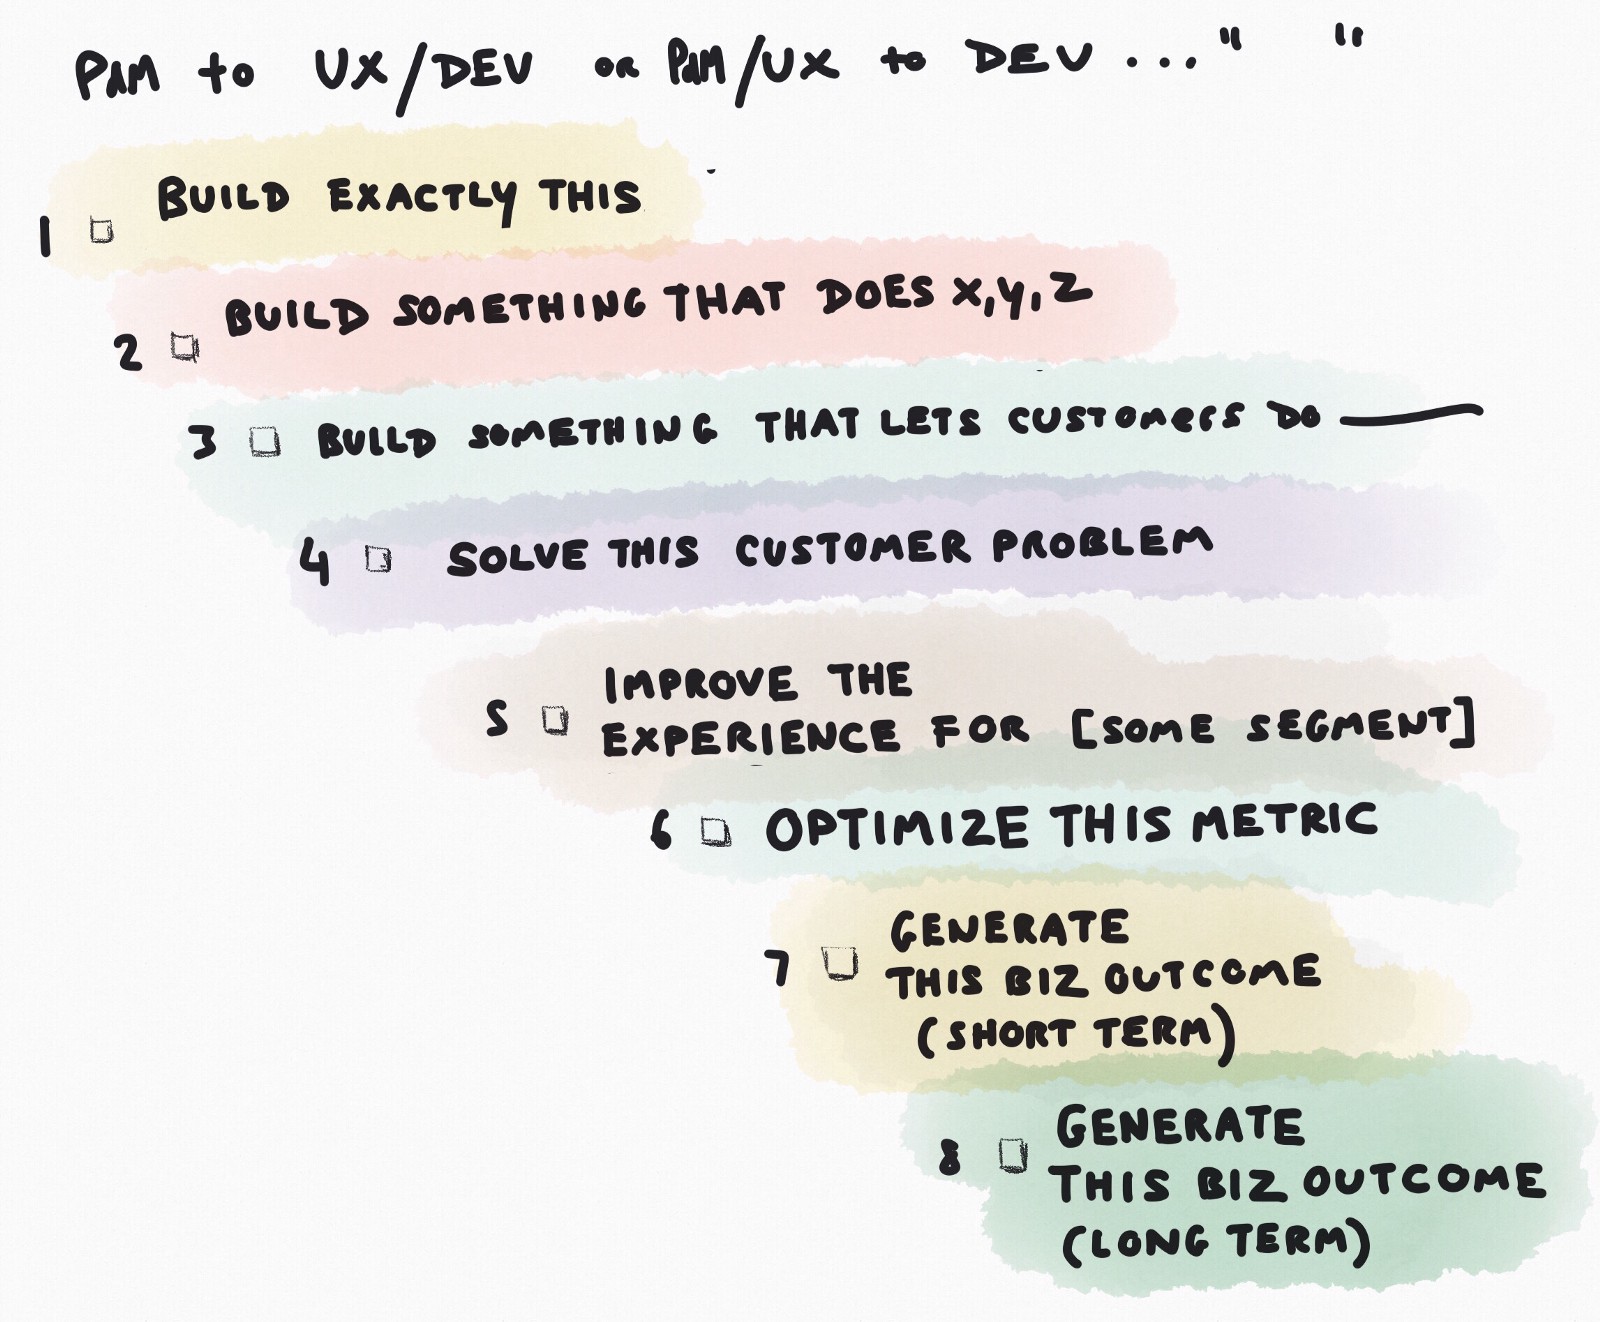 PdM to UX/DEV or PdM/UX to DEV ..." "
1 BUILD EXACTLY THIS
2 BUILD SOMETHING THAT DOES X,Y,Z
3 BUILD SOMETHING THAT LETS CUSTOMERS DO ———
4 SOLVE THIS CUSTOMER PROBLEM
5 IMPROVE THE
EXPERIENCE FOR [SOME SEGMENT]
6 OPTIMIZE THIS METRIC
7 GENERATE
THIS BIZ OUTCOME
(SHORT TERM)
8 GENERATE
THIS BIZ OUTCOME
(LONG TERM)